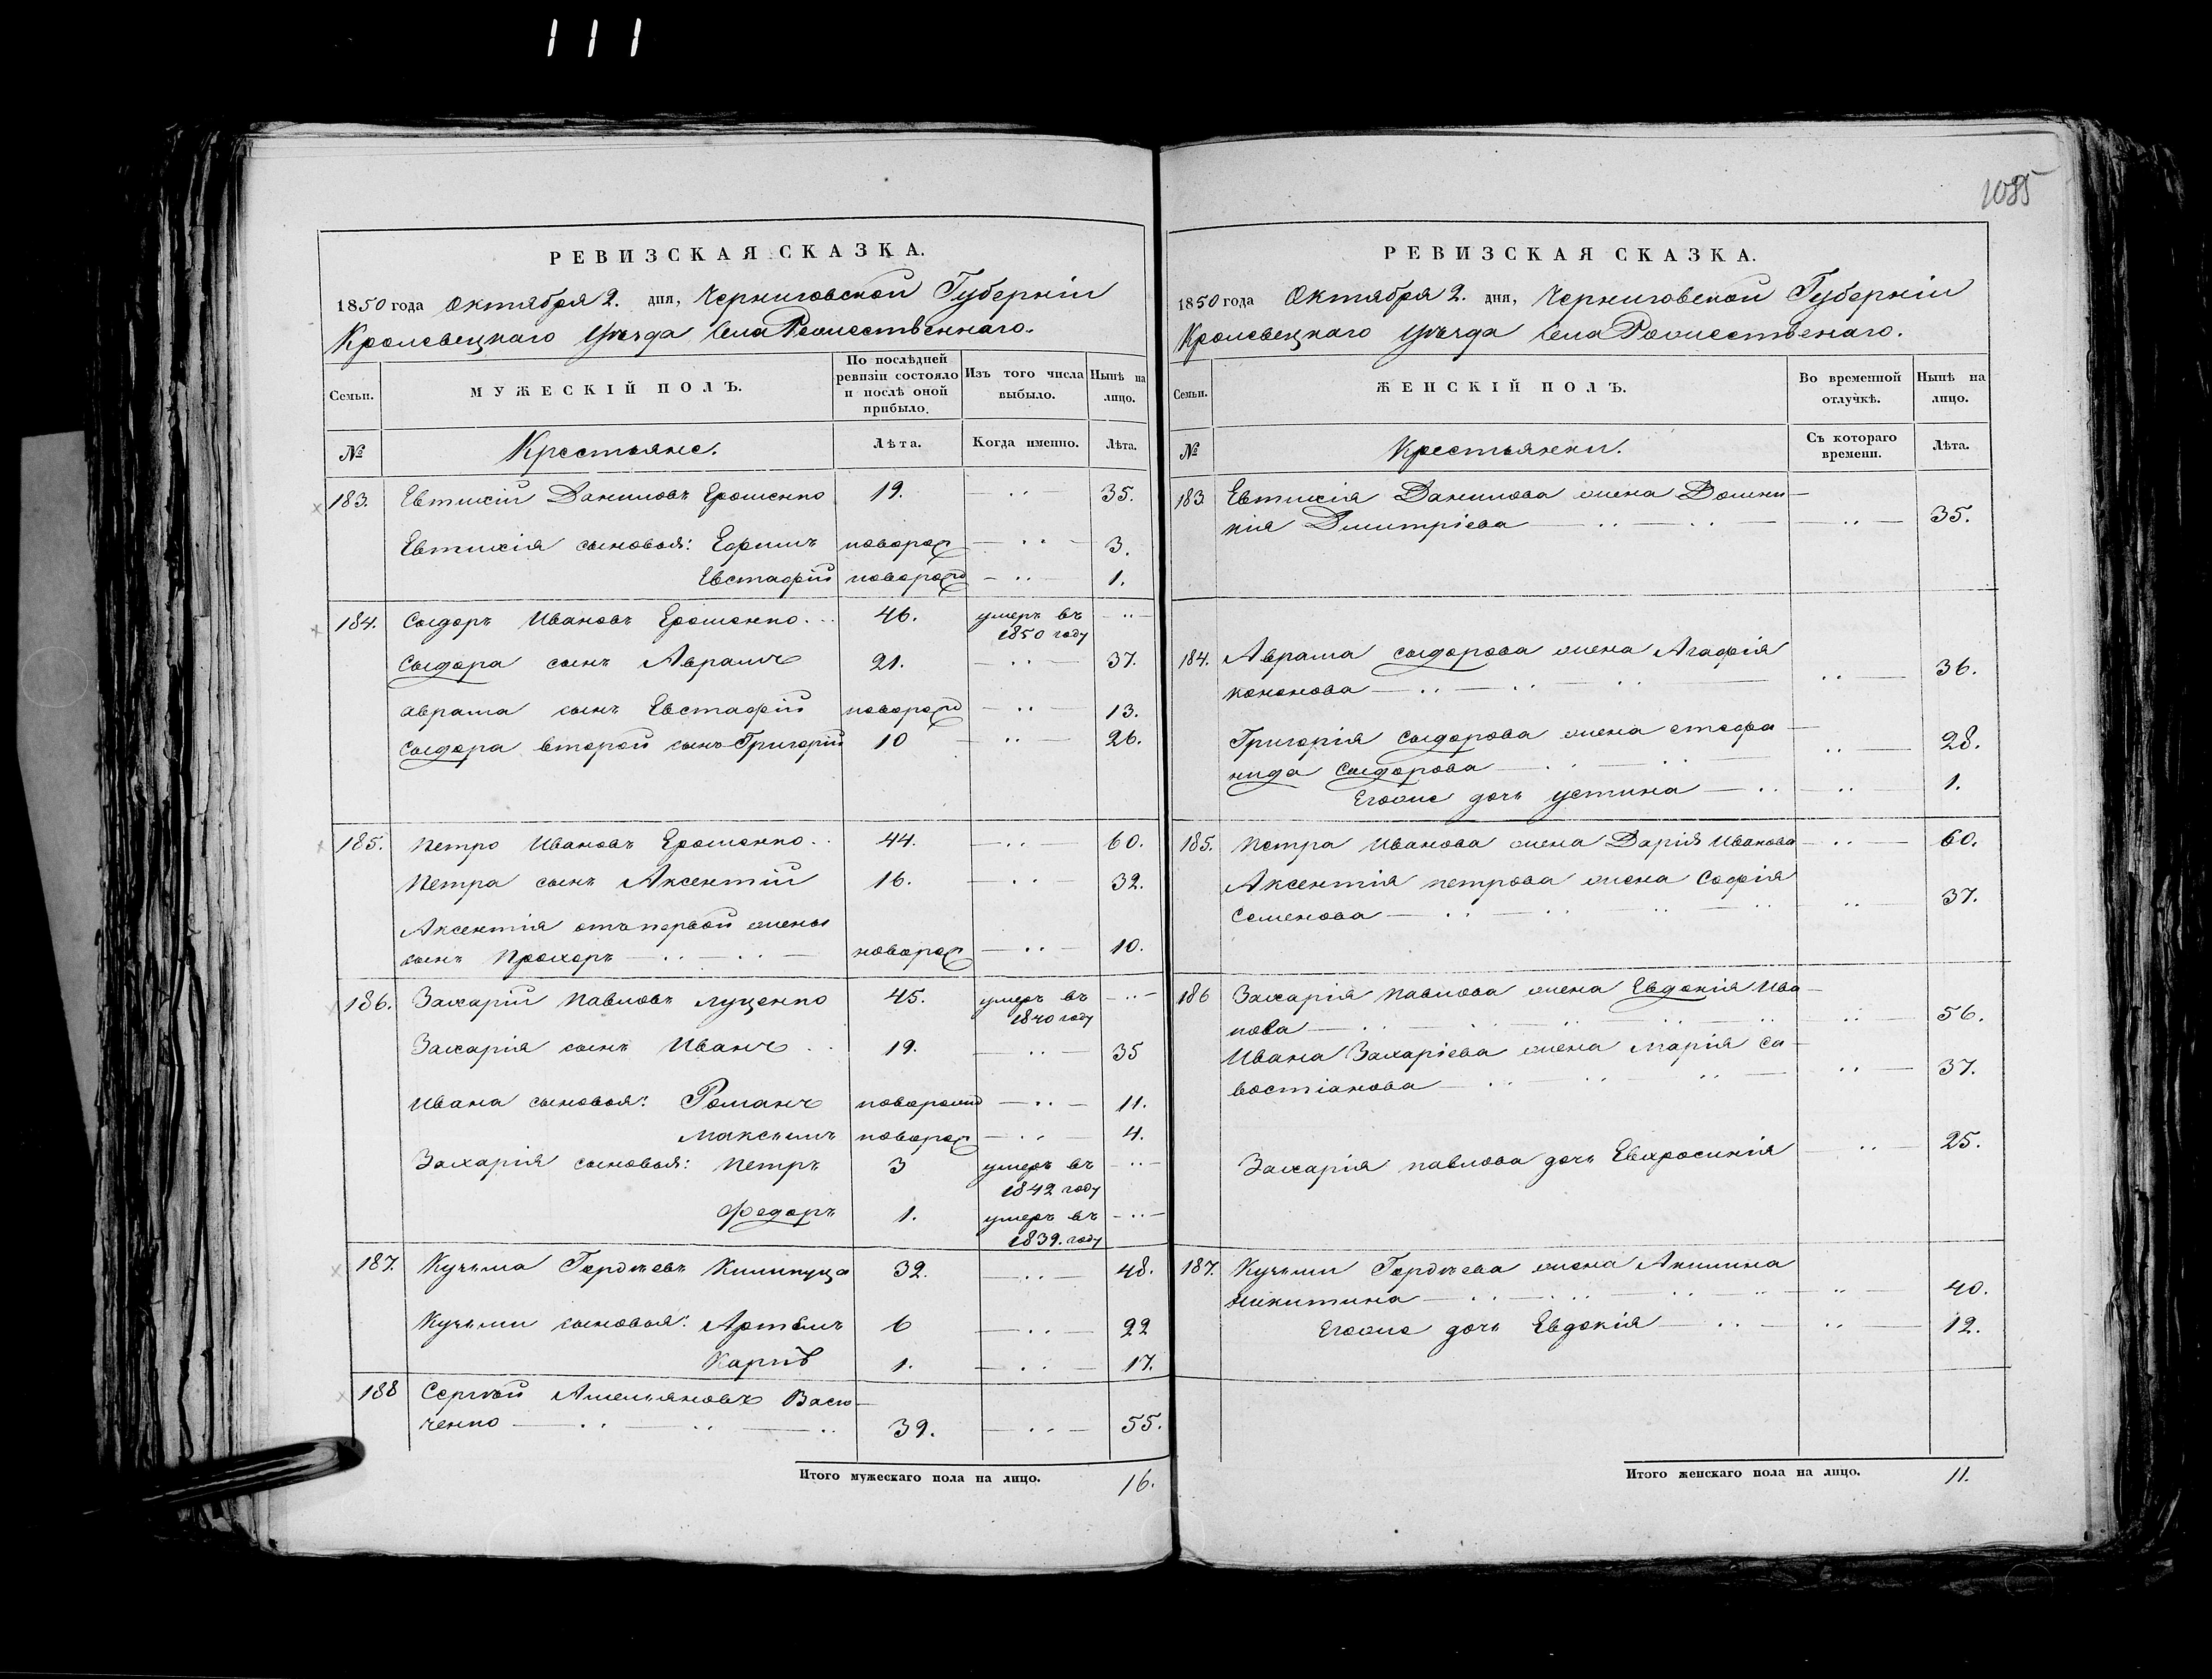 111
1085
РЕВИЗСКАЯ СКАЗКА.
1850 года Октября 2. дня, Черниговской Губерніи
Кролевецкаго Уѣзда Села Рожественнаго.
Семьи. МУЖЕСКІЙ ПОЛЪ. По послѣдней ревизіи состояло и послѣ оной прибыло. Изъ того числа выбыло. Нынѣ на лицо.
№ Крестьяне. Лѣта. Когда именно. Лѣта.
183. Евтихій Даниловъ Ерошенко 19. 35.
Евтихія сыновья: Ефимъ новорож 3.
Евстафій новорожд 1.
184. Сыдоръ Ивановъ Ерошенко 46. умеръ въ
1850 году
Сыдора сынъ Аврамъ 21. 37.
аврама сынъ Евстафій новорожд 13.
Сыдора второй сынъ Григорій 10 26.
185. Петро Ивановъ Ерошенко 44. 60.
Петра сынъ Аксентій 16. 32.
Аксентія отъ первой жены
сынъ Прохоръ новорож 10.
186. Захарій Павловъ Луценко 45. умеръ въ
1840 году
Захарія сынъ Иванъ 19. 35
Ивана сыновья: Романъ новорожд 11.
Максымъ новорож 4.
Захарія сыновья: Петръ 3 умеръ въ
1842 году
Федоръ 1. умеръ въ
1839. году
187. Кузьма Гордѣевъ 32. 48.
Кузьми сыновья: Артемъ 6 22
Карпъ 1. 17.
188 Сергѣй Амельяновъ Васю-
ченко 39. 55.
Итого мужескаго пола на лицо. 16.
РЕВИЗСКАЯ СКАЗКА.
1850 года Октября 2. дня, Черниговской Губерніи
Кролевецкаго Уѣзда Села Рожественаго.
Семьи. ЖЕНСКІЙ ПОЛЪ. Во временной отлучкѣ. Нынѣ на лицо.
№ Крестьянки. Съ котораго времени. Лѣта.
183 Евтихія Данилова жена Домни-
кія Димитріева 35.
184. Аврама Сыдорова жена Агафія
кононова 36.
Григорія Сыдорова жена стефа-
нида Сыдорова 28.
Егоже дочь устина 1.
185. Петра Иванова жена Дарія Иванова 60.
Аксентія петрова жена Софія
Семенова 37.
186 Захарія Павлова жена Евдокія Ива-
нова 56.
Ивана Захаріева жена Марія Са-
востіанова 37.
Захарія павлова дочь Евхросинія 25.
187. Кузьми Гордѣева жена Акилина
Никитина 40.
Егоже дочь Евдокія 12.
Итого женскаго пола на лицо. 11.